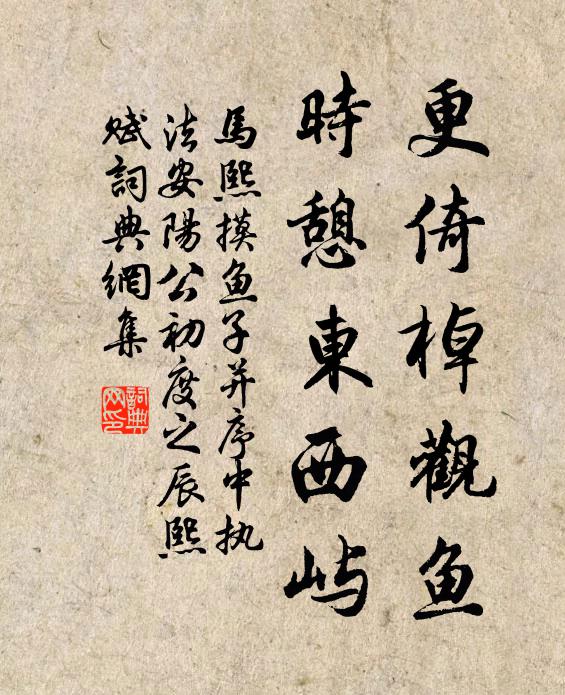 更倚棹觀鱼
時憩東西屿
馬熙摸鱼子并序中执
法安陽公初度之辰熙
赋詞典網集
詞典
网印